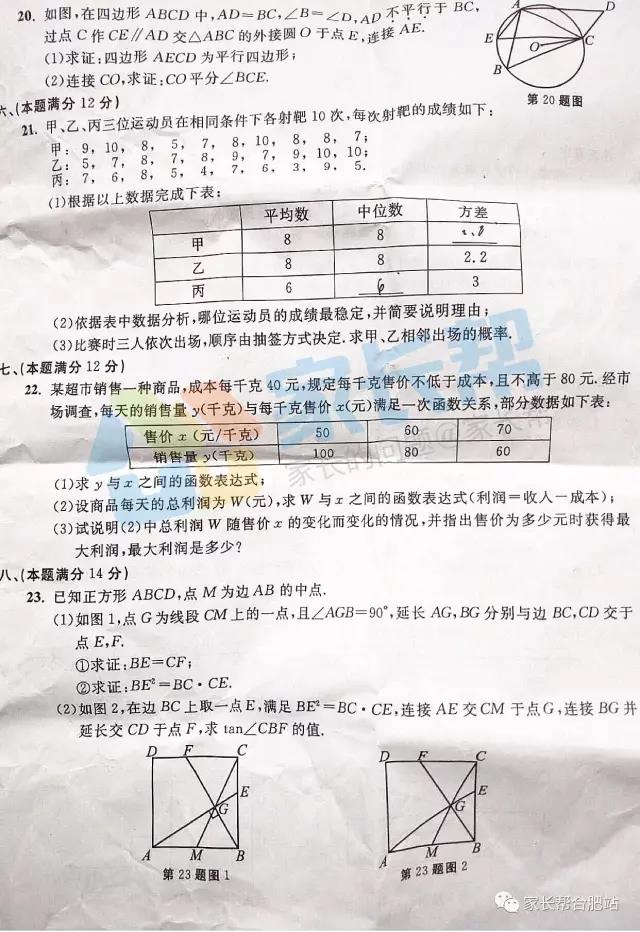 20. 如图,在四边形 ABCD 中,AD=BC,∠B=∠D,AD 不平行于 BC,
过点 C 作 CE∥AD 交△ABC 的外接圆 O 于点 E,连接 AE.
(1)求证:四边形 AECD 为平行四边形;
(2)连接 CO,求证:CO 平分∠BCE.
A
D
E
O
C
B
第 20 题图
六、(本题满分 12 分)
21. 甲、乙、丙三位运动员在相同条件下各射靶 10 次,每次射靶的成绩如下:
甲: 9, 10, 8, 5, 7, 8, 10, 8, 8, 7;
乙: 5, 7, 8, 7, 8, 9, 7, 9, 10, 10;
丙: 7, 6, 8, 5, 4, 7, 6, 3, 9, 5.
(1)根据以上数据完成下表:
平均数 中位数 方差
甲 8 8
乙 8 8 2.2
丙 6 6 3
(2)依据表中数据分析,哪位运动员的成绩最稳定,并简要说明理由;
(3)比赛时三人依次出场,顺序由抽签方式决定.求甲、乙相邻出场的概率.
七、(本题满分 12 分)
22. 某超市销售一种商品,成本每千克 40 元,规定每千克售价不低于成本,且不高于 80 元.经市
场调查,每天的销售量 y(千克)与每千克售价 x(元)满足一次函数关系,部分数据如下表:
售价 x (元/千克) 50 60 70
销售量 y(千克) 100 80 60
(1)求 y 与 x 之间的函数表达式;
(2)设商品每天的总利润为 W(元),求 W 与 x 之间的函数表达式(利润=收入-成本);
(3)试说明(2)中总利润 W 随售价 x 的变化而变化的情况,并指出售价为多少元时获得最
大利润,最大利润是多少?
八、(本题满分 14 分)
23. 已知正方形 ABCD,点 M 为边 AB 的中点.
(1)如图 1,点 G 为线段 CM 上的一点,且∠AGB=90°,延长 AG,BG 分别与边 BC,CD 交于
点 E,F.
①求证:BE=CF;
②求证:BE²=BC·CE.
(2)如图 2,在边 BC 上取一点 E,满足 BE²=BC·CE,连接 AE 交 CM 于点 G,连接 BG 并
延长交 CD 于点 F,求 tan∠CBF 的值.
D F C
E
G
A M B
第 23 题图 1
D F C
E
G
A M B
第 23 题图 2
家长帮
家长的问题@家长帮
家长帮合肥站